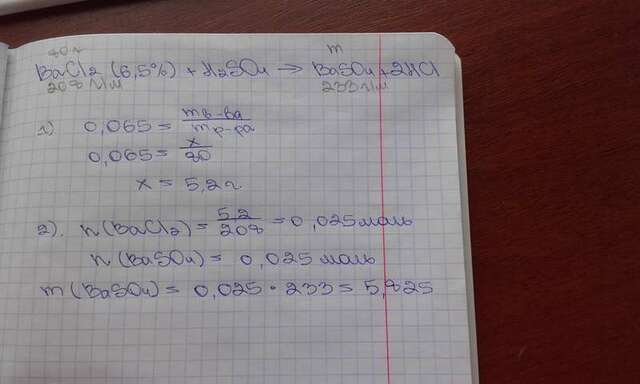 80г m
BaCl2 (6,5%) + H2SO4 → BaSO4 + 2HCl
208 г/м 233 г/м
1) 0,065 = mв-ва / mр-ра
0,065 = x / 80
x = 5,2г
2). n(BaCl2) = 5,2 / 208 = 0,025 моль
n(BaSO4) = 0,025 моль
m(BaSO4) = 0,025 · 233 = 5,825